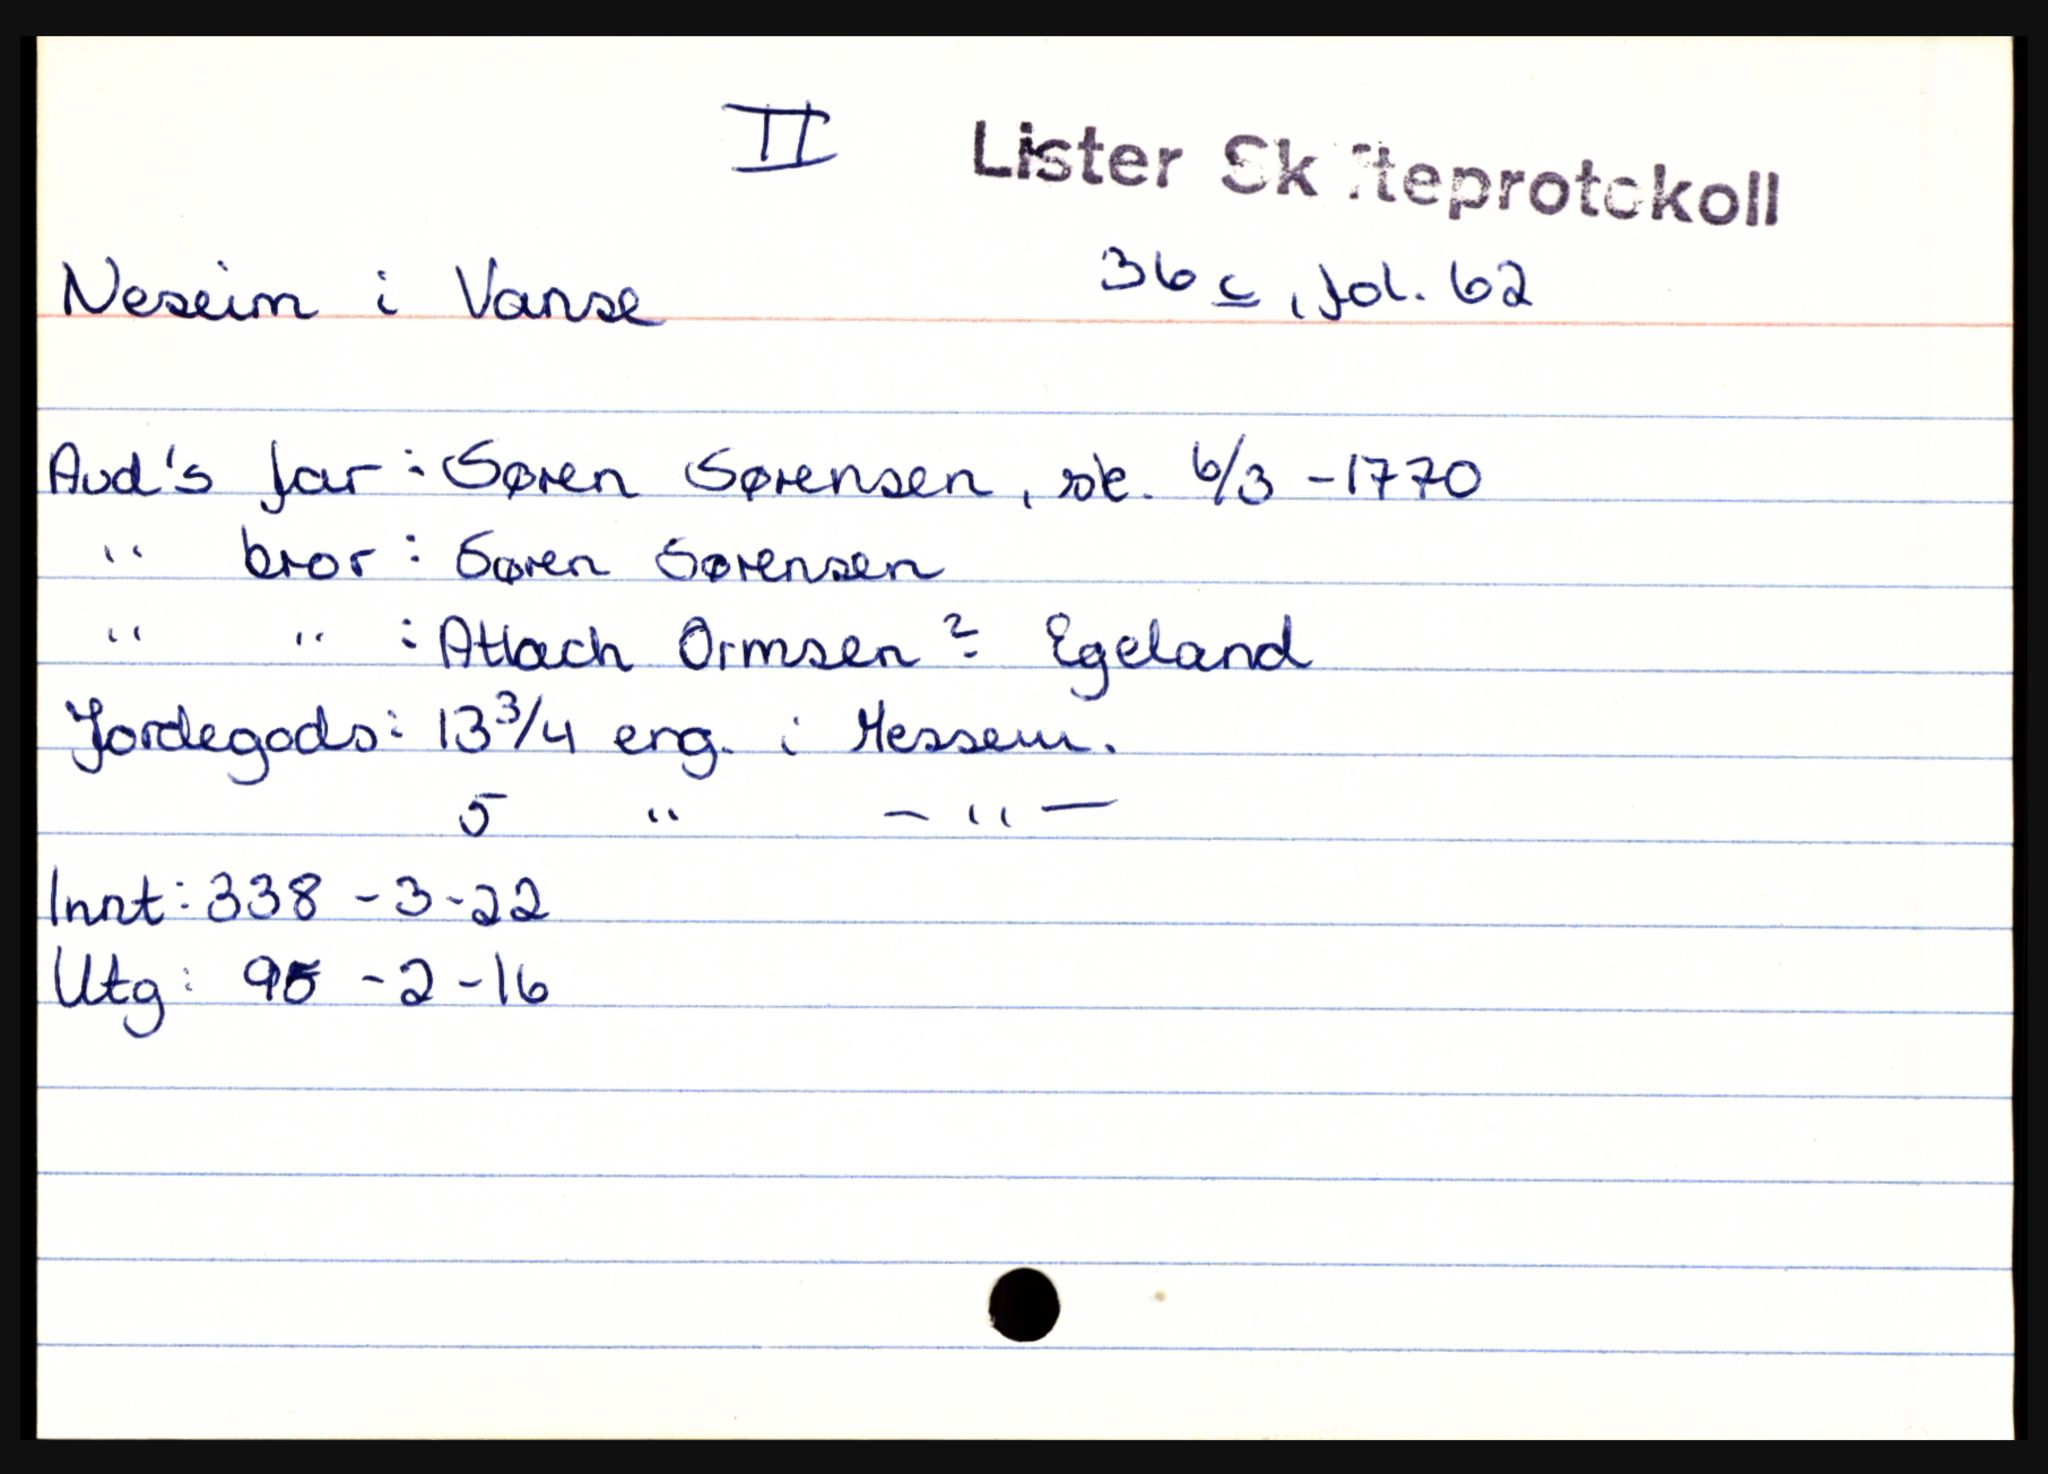 II Lister Skifteprotokoll
Neseim i Vanse 36 c, fol. 62
Aud's far: Søren Sørensen, sk. 6/3 - 1770
" bror: Søren Sørensen
" " : Atlach Ormsen? Egeland
Jordegods: 13 3/4 eng. i Messem.
5 " - " -
Innt: 338 - 3 - 22
Utg: 95 - 2 - 16